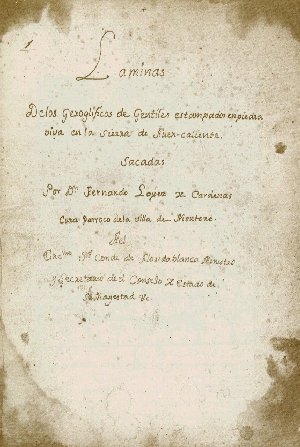 Laminas
De los Geroglificos de Gentiles estampados en piedra
viva en la Sierra de Fuen-caliente.
Sacadas
Por Dn. Fernando Lopez de Cardenas
Cura Parroco de la Villa de Montoro.
Al
Excmo. Sor. Conde de Floridablanca Ministro
y Secretario de el Consejo de Estado de
S. Magestad &c.